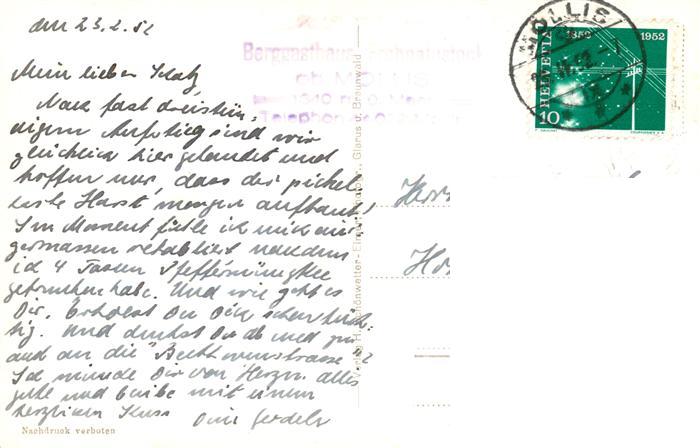 den 23.2.52
Mein lieber Schatz
Nach fast dreistün-
digem Aufstieg sind wir
glücklich hier gelandet und
hoffen nur, dass der pickel-
harte Harst morgen auftaut!
Im Moment fühle ich mich ei-
germassen retabliert nachdem
ich 4 Tassen Pfefferminztee
getrunken habe. Und wie geht es
Dir. Erholst Du Dich schon
tig. Und denkst Du ab und zu
auch an die Beethovenstrasse?
Ich wünsche Dir von Herzen alles
gute und bleibe mit einem
herzlichen Kuss Dein
Nachdruck verboten
Berggasthaus Fronalpstock
ob. MOLLIS
1340 m ü. Meer
Telephon
Verlag H. Schönwetter-Elmer, Glarus u. Braunwald
MOLLIS
HELVETIA 1852 1952
10
COURVOISIER S.A.
Herr